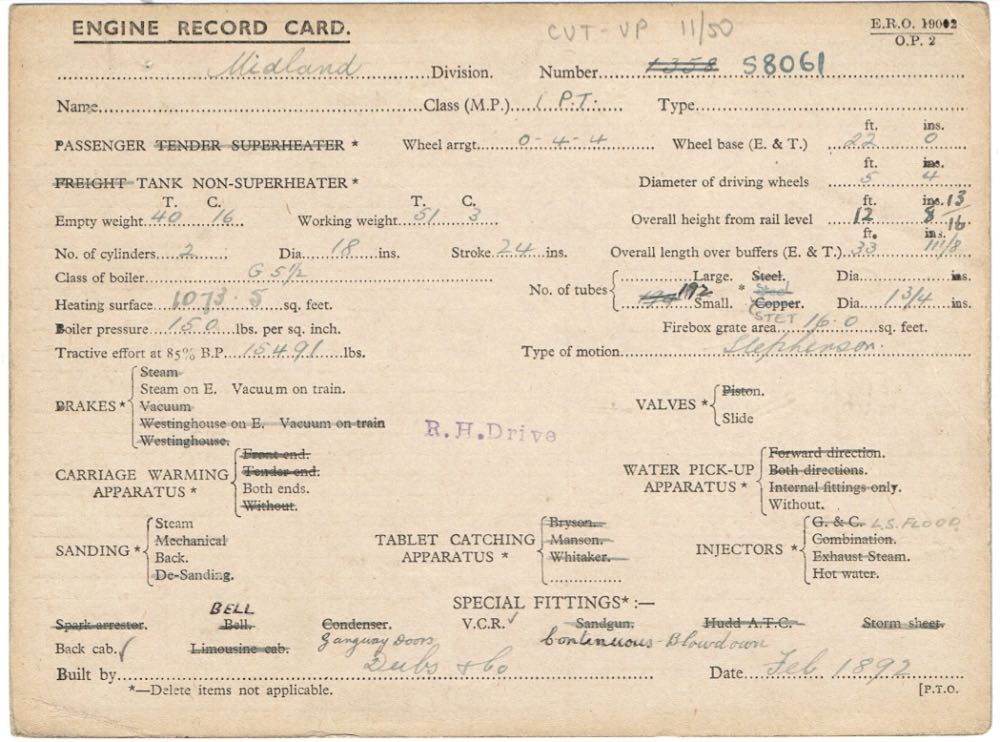 ENGINE RECORD CARD. CUT-UP 11/50 E.R.O. 19002
O.P. 2
Midland Division. Number 1358 58061
Name Class (M.P.) 1 P.T. Type
ft. ins.
PASSENGER TENDER SUPERHEATER * Wheel arrgt. 0-4-4 Wheel base (E. & T.) 22 0
ft. ins.
FREIGHT TANK NON-SUPERHEATER * Diameter of driving wheels 5 4
T. C. T. C. ft. ins. 13/16
Empty weight 40 16 Working weight 51 3 Overall height from rail level 12 8
ft. ins.
No. of cylinders 2 Dia. 18 ins. Stroke 24 ins. Overall length over buffers (E. & T.) 33 11 1/8
Class of boiler G 5½
No. of tubes Large. Steel. Dia. ins.
192 Small. * Steel Copper. Dia. 1 3/4 ins.
STET
Heating surface 1073.5 sq. feet.
Boiler pressure 150 lbs. per sq. inch. Firebox grate area 16.0 sq. feet.
Tractive effort at 85% B.P. 15491 lbs. Type of motion Stephenson.
BRAKES * Steam
Steam on E. Vacuum on train.
Vacuum
Westinghouse on E. Vacuum on train
Westinghouse.
VALVES * Piston.
Slide
R.H.Drive
CARRIAGE WARMING APPARATUS * Front end.
Tender end.
Both ends.
Without.
WATER PICK-UP APPARATUS * Forward direction.
Both directions.
Internal fittings only.
Without.
SANDING * Steam
Mechanical
Back.
De-Sanding.
TABLET CATCHING APPARATUS * Bryson.
Manson.
Whitaker.
INJECTORS * G. & C. L.S. FLOOD
Combination.
Exhaust Steam.
Hot water.
SPECIAL FITTINGS* :—
BELL
Spark arrestor. Bell. Condenser. V.C.R. ✓ Sandgun. Hudd A.T.C. Storm sheet.
Back cab. ✓ Limousine cab. Gangway Doors Continuous Blowdown
Built by Dubs & Co Date Feb 1892
*—Delete items not applicable. [P.T.O.